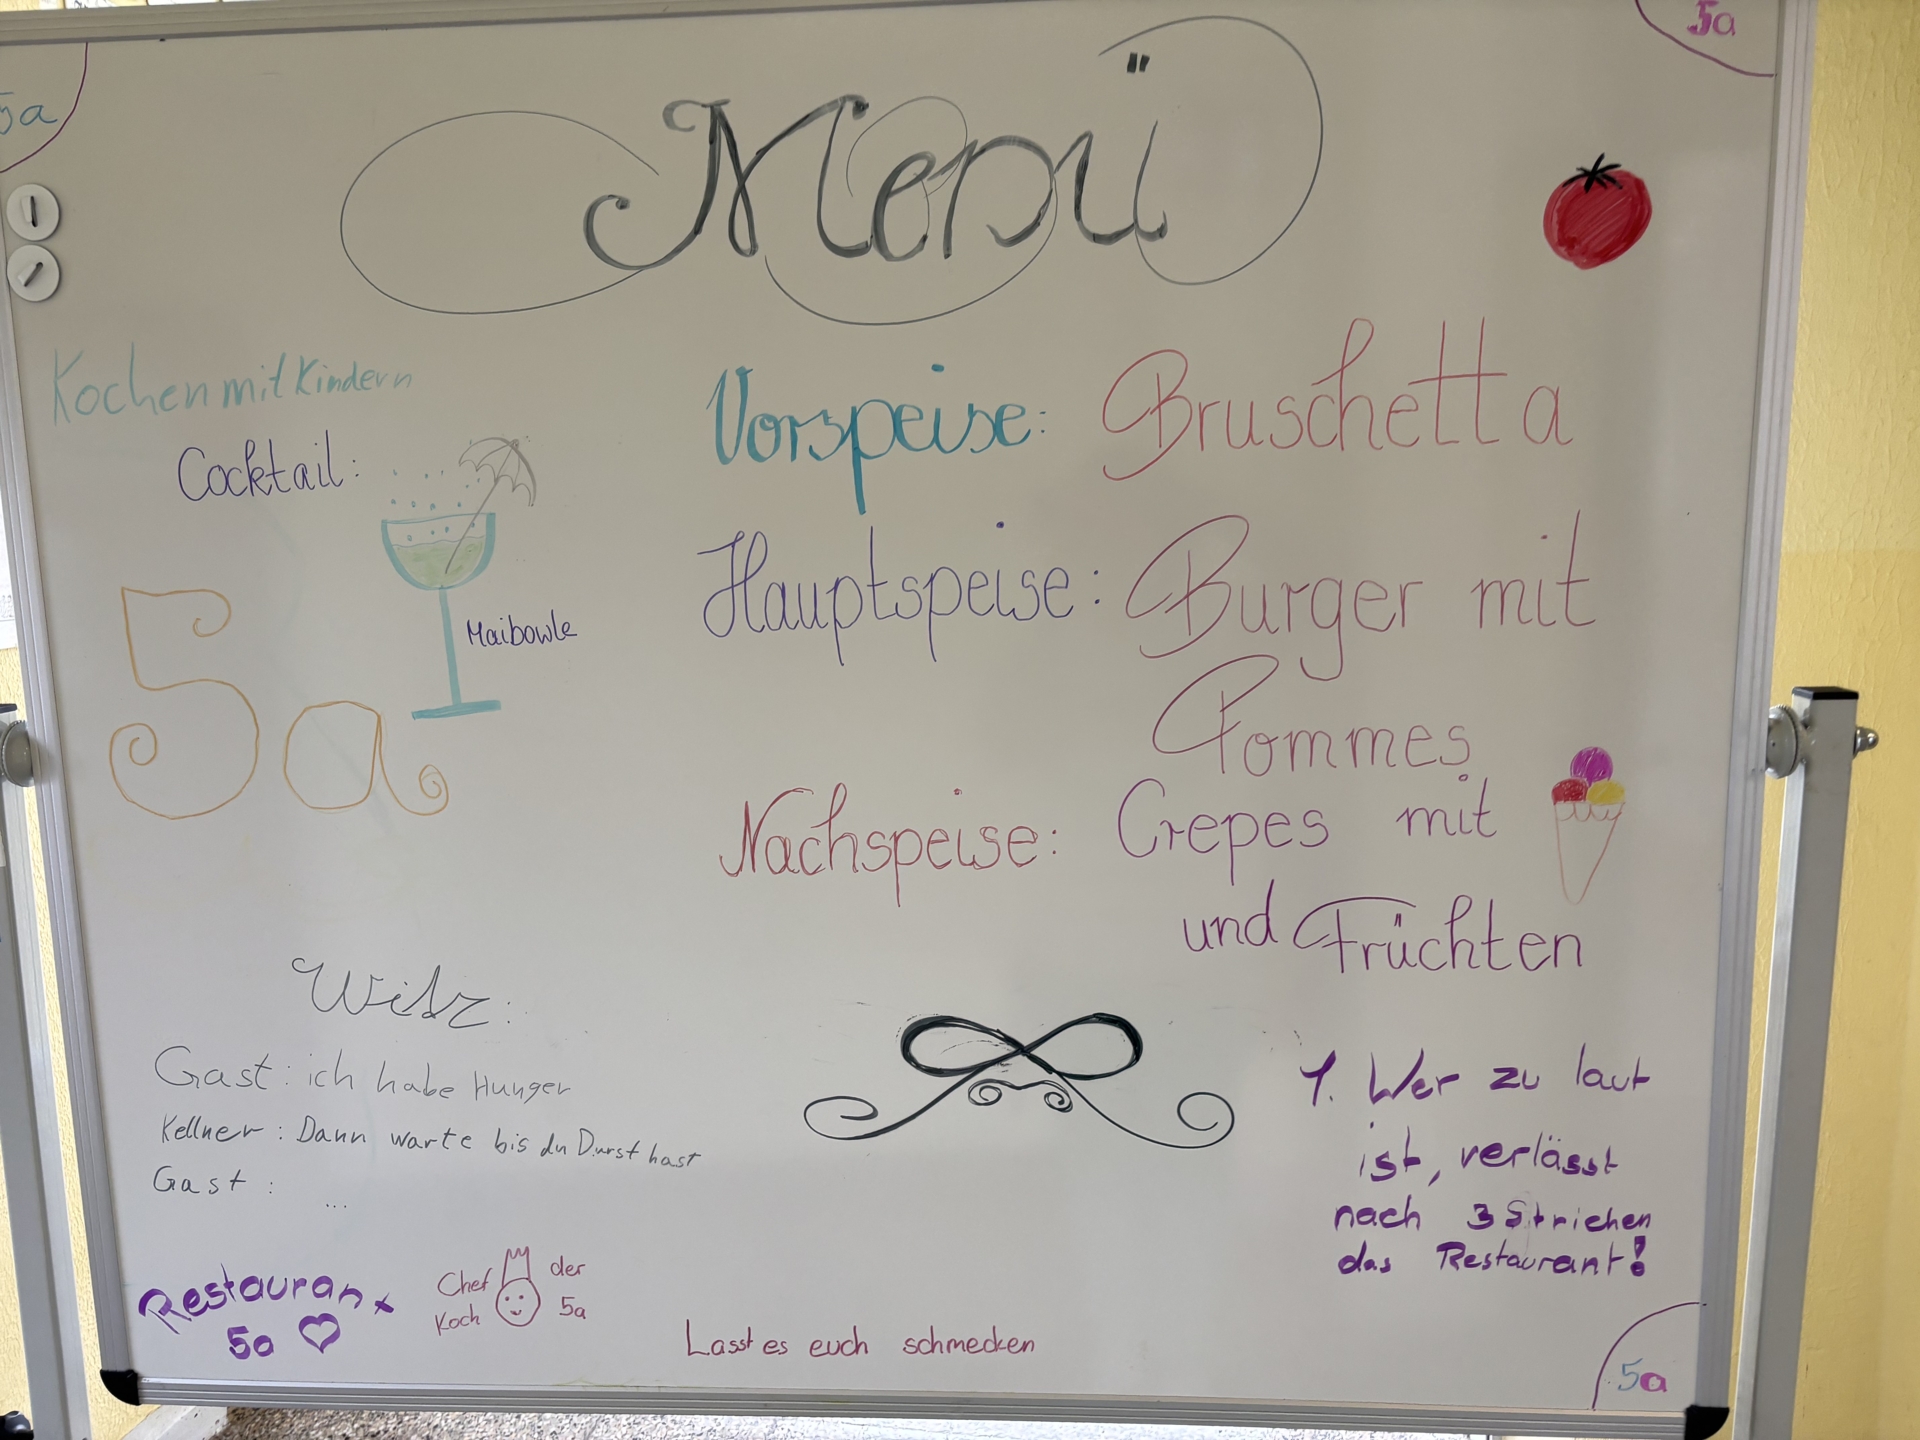 5a
5a
Menü
Kochen mit Kindern
Cocktail:
Maibowle
5a
Vorspeise: Bruschetta
Hauptspeise: Burger mit
Pommes
Nachspeise: Crepes mit
und Früchten
Witz:
Gast: ich habe Hunger
Kellner: Dann warte bis du Durst hast
Gast:
...
1. Wer zu laut
ist, verlässt
nach 3 Strichen
das Restaurant!
Restaurant
5a
Chef der
Koch 5a
Lasst es euch schmecken
5a